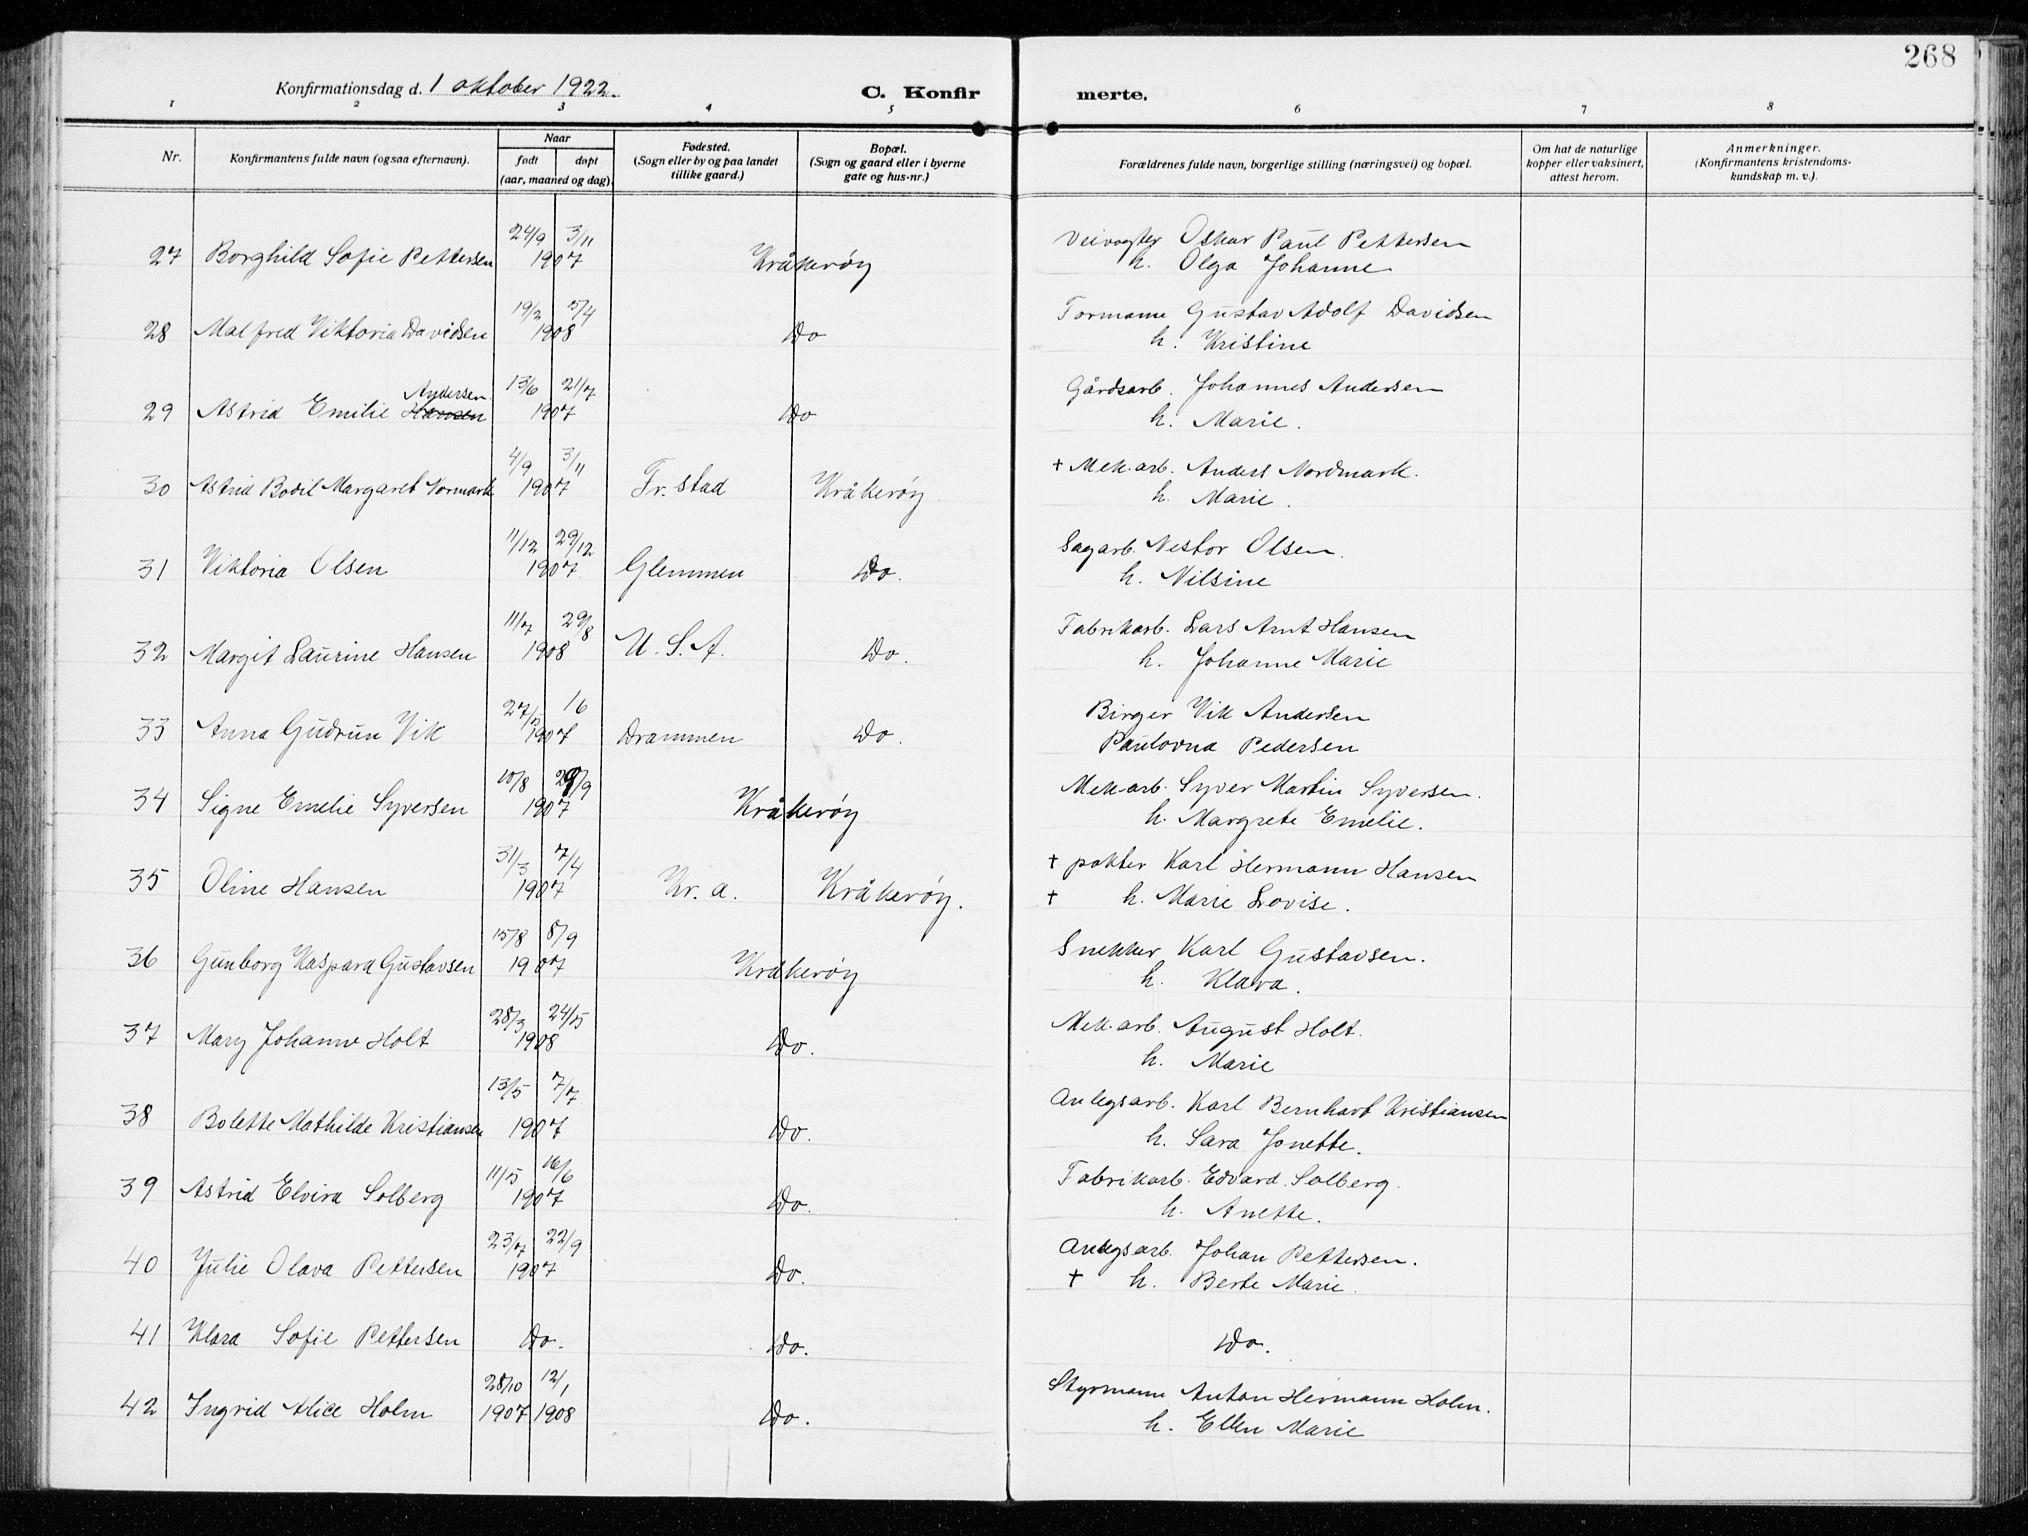 268
Konfirmationsdag d. 1 oktober 1922.
C. Konfirmerte.
1 2 3 4 5 6 7 8
Nr.
Konfirmantens fulde navn (ogsaa efternavn).
Naar
født døpt
(aar, maaned og dag).
Fødested.
(Sogn eller by og paa landet
tillike gaard.)
Bopæl.
(Sogn og gaard eller i byerne
gate og hus-nr.)
Forældrenes fulde navn, borgerlige stilling (næringsvei) og bopæl.
Om hat de naturlige
kopper eller vaksinert,
attest herom.
Anmerkninger.
(Konfirmantens kristendoms-
kundskap m. v.).
24/9 3/11
27 Borghild Sofie Pettersen 1907 Kråkerøy
Veivogter Oskar Paul Pettersen
h. Olga Johanne
19/2 5/4
28 Malfred Viktoria Davidsen 1908 Do
Formann Gustav Adolf Davidsen
h. Kristine
Andersen 13/6 21/7
29 Astrid Emilie Hansen 1907 Do
Gårdsarb. Johannes Andersen
h. Marie.
4/9 3/11
30 Astrid Bodil Margaret Normark 1907 Fr.stad Kråkerøy
+ Mek.arb. Anders Nordmark.
h. Marie.
11/12 29/12
31 Viktoria Olsen 1907 Glemmen Do.
Sagarb. Nestor Olsen.
h. Nilsine
11/7 29/8
32 Margit Laurine Hansen 1908 U.S.A. Do.
Fabrikarb. Lars Arnt Hansen
h. Johanne Marie
27/5 16
33 Anna Gudrun Vik 1907 Drammen Do.
Birger Vik Andersen
Paulovna Pedersen
10/8 29/9
34 Signe Emelie Syversen 1907 Kråkerøy
Mek.arb. Syver Martin Syversen.
h. Margrete Emelie.
31/3 7/4
35 Oline Hansen 1907 Kr.a. Kråkerøy.
+ pokter Karl Hermann Hansen
+ h. Marie Lovise.
15/8 8/9
36 Gunborg Kaspara Gustavsen 1907 Kråkerøy
Snekker Karl Gustavsen.
h. Klara.
28/3 24/5
37 Mary Johanne Holt 1908 Do.
Mek.arb. August Holt.
h. Marie
13/5 7/7
38 Bolette Mathilde Kristiansen 1907 Do.
Anlegsarb. Karl Bernhart Kristiansen
h. Sara Jonette.
11/5 16/6
39 Astrid Elvira Solberg 1907 Do.
Fabrikarb. Edvard Solberg.
h. Anette.
23/7 22/9
40 Julie Olava Pettersen 1907 Do.
Anlegsarb. Johan Pettersen.
+ h. Berte Marie.
41 Klara Sofie Pettersen Do. Do.
Do.
28/10 12/1
42 Ingrid Alice Holm 1907 1908 Do.
Styrmann Anton Hermann Holm.
h. Ellen Marie